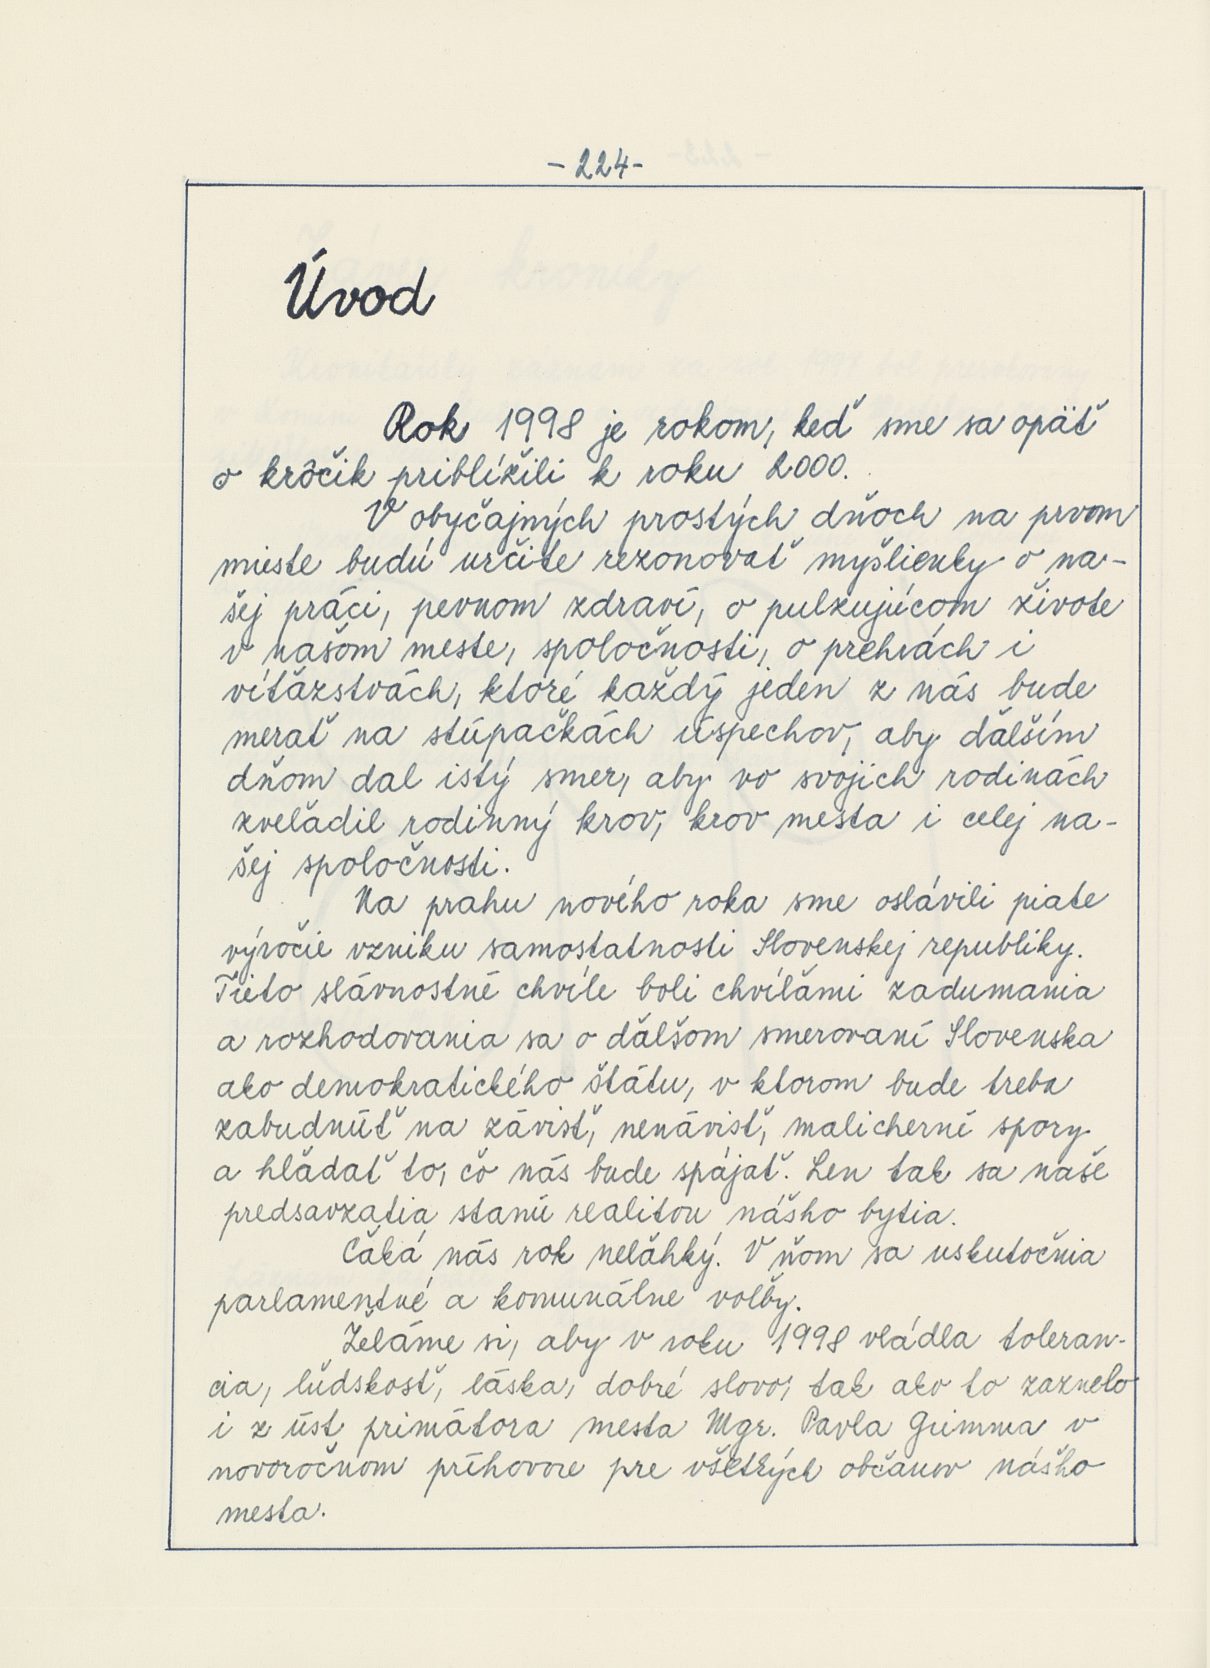 - 224 -
Úvod
Rok 1998 je rokom, keď sme sa opäť
o krôčik priblížili k roku 2000.
V obyčajných prostých dňoch na prvom
mieste budú určite rezonovať myšlienky o na-
šej práci, pevnom zdraví, o pulzujúcom živote
v našom meste, spoločnosti, o prehrách i
víťazstvách, ktoré každý jeden z nás bude
merať na stúpačkách úspechov, aby ďalším
dňom dal istý smer, aby vo svojich rodinách
zveľadil rodinný krov, krov mesta i celej na-
šej spoločnosti.
Na prahu nového roka sme oslávili piate
výročie vzniku samostatnosti Slovenskej republiky.
Tieto slávnostné chvíle boli chvíľami zadumania
a rozhodovania sa o ďalšom smerovaní Slovenska
ako demokratického štátu, v ktorom bude treba
zabudnúť na závisť, nenávisť, malicherné spory
a hľadať to, čo nás bude spájať. Len tak sa naše
predsavzatia stanú realitou nášho bytia.
Čaká nás rok neľahký. V ňom sa uskutočnia
parlamentné a komunálne voľby.
Želáme si, aby v roku 1998 vládla toleran-
cia, ľudskosť, láska, dobré slovo, tak ako to zaznelo
i z úst primátora mesta Mgr. Pavla Grimma v
novoročnom príhovore pre všetkých občanov nášho
mesta.